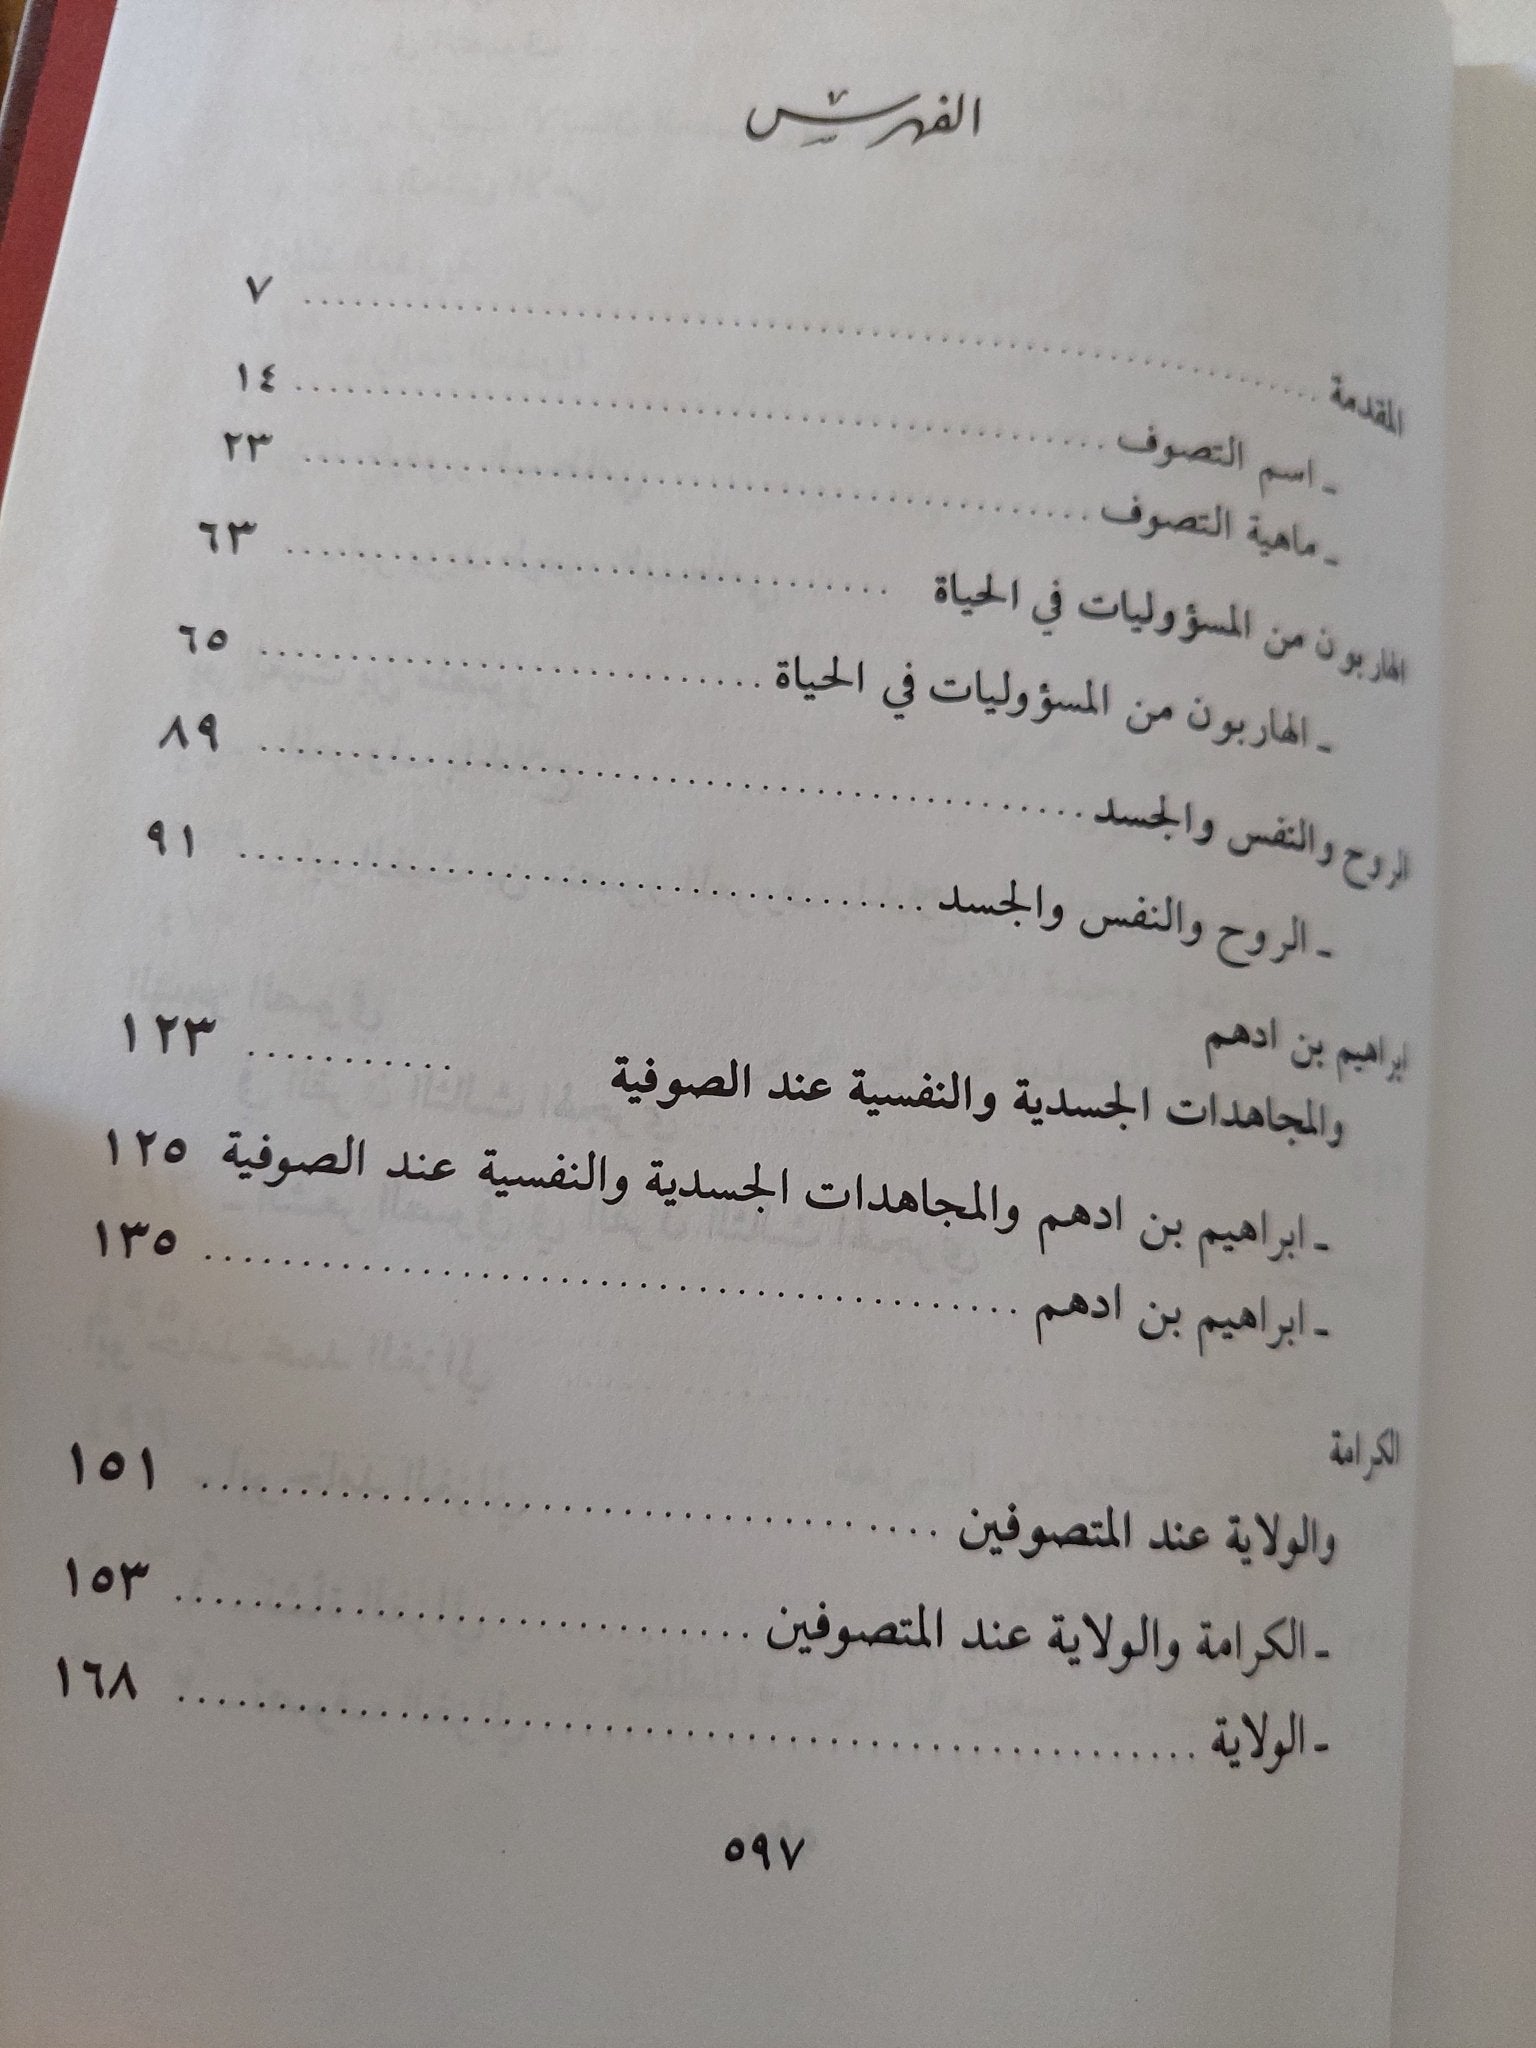 الفهرس
المقدمة ........ ٧
ـ اسم التصوف ........ ١٤
ـ ماهية التصوف ........ ٢٣
الهاربون من المسؤوليات في الحياة ........ ٦٣
ـ الهاربون من المسؤوليات في الحياة ........ ٦٥
الروح والنفس والجسد ........ ٨٩
ـ الروح والنفس والجسد ........ ٩١
ابراهيم بن ادهم
والمجاهدات الجسدية والنفسية عند الصوفية ........ ١٢٣
ـ ابراهيم بن ادهم والمجاهدات الجسدية والنفسية عند الصوفية ١٢٥
ـ ابراهيم بن ادهم ........ ١٣٥
الكرامة
والولاية عند المتصوفين ........ ١٥١
ـ الكرامة والولاية عند المتصوفين ........ ١٥٣
ـ الولاية ........ ١٦٨
٥٩٧